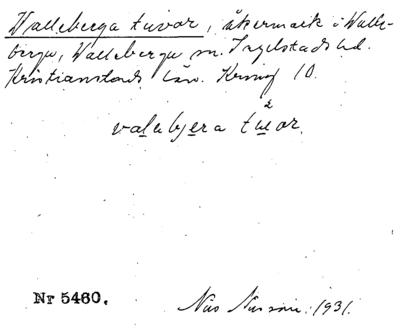 Valleberga tuvor, åkermark i Valle-
berga, Valleberga sn. Ingelstads hd.
Kristianstads län. Kring 10.
valebjera tuvor.
Nr 5460.
Nils Nilsson. 1931.